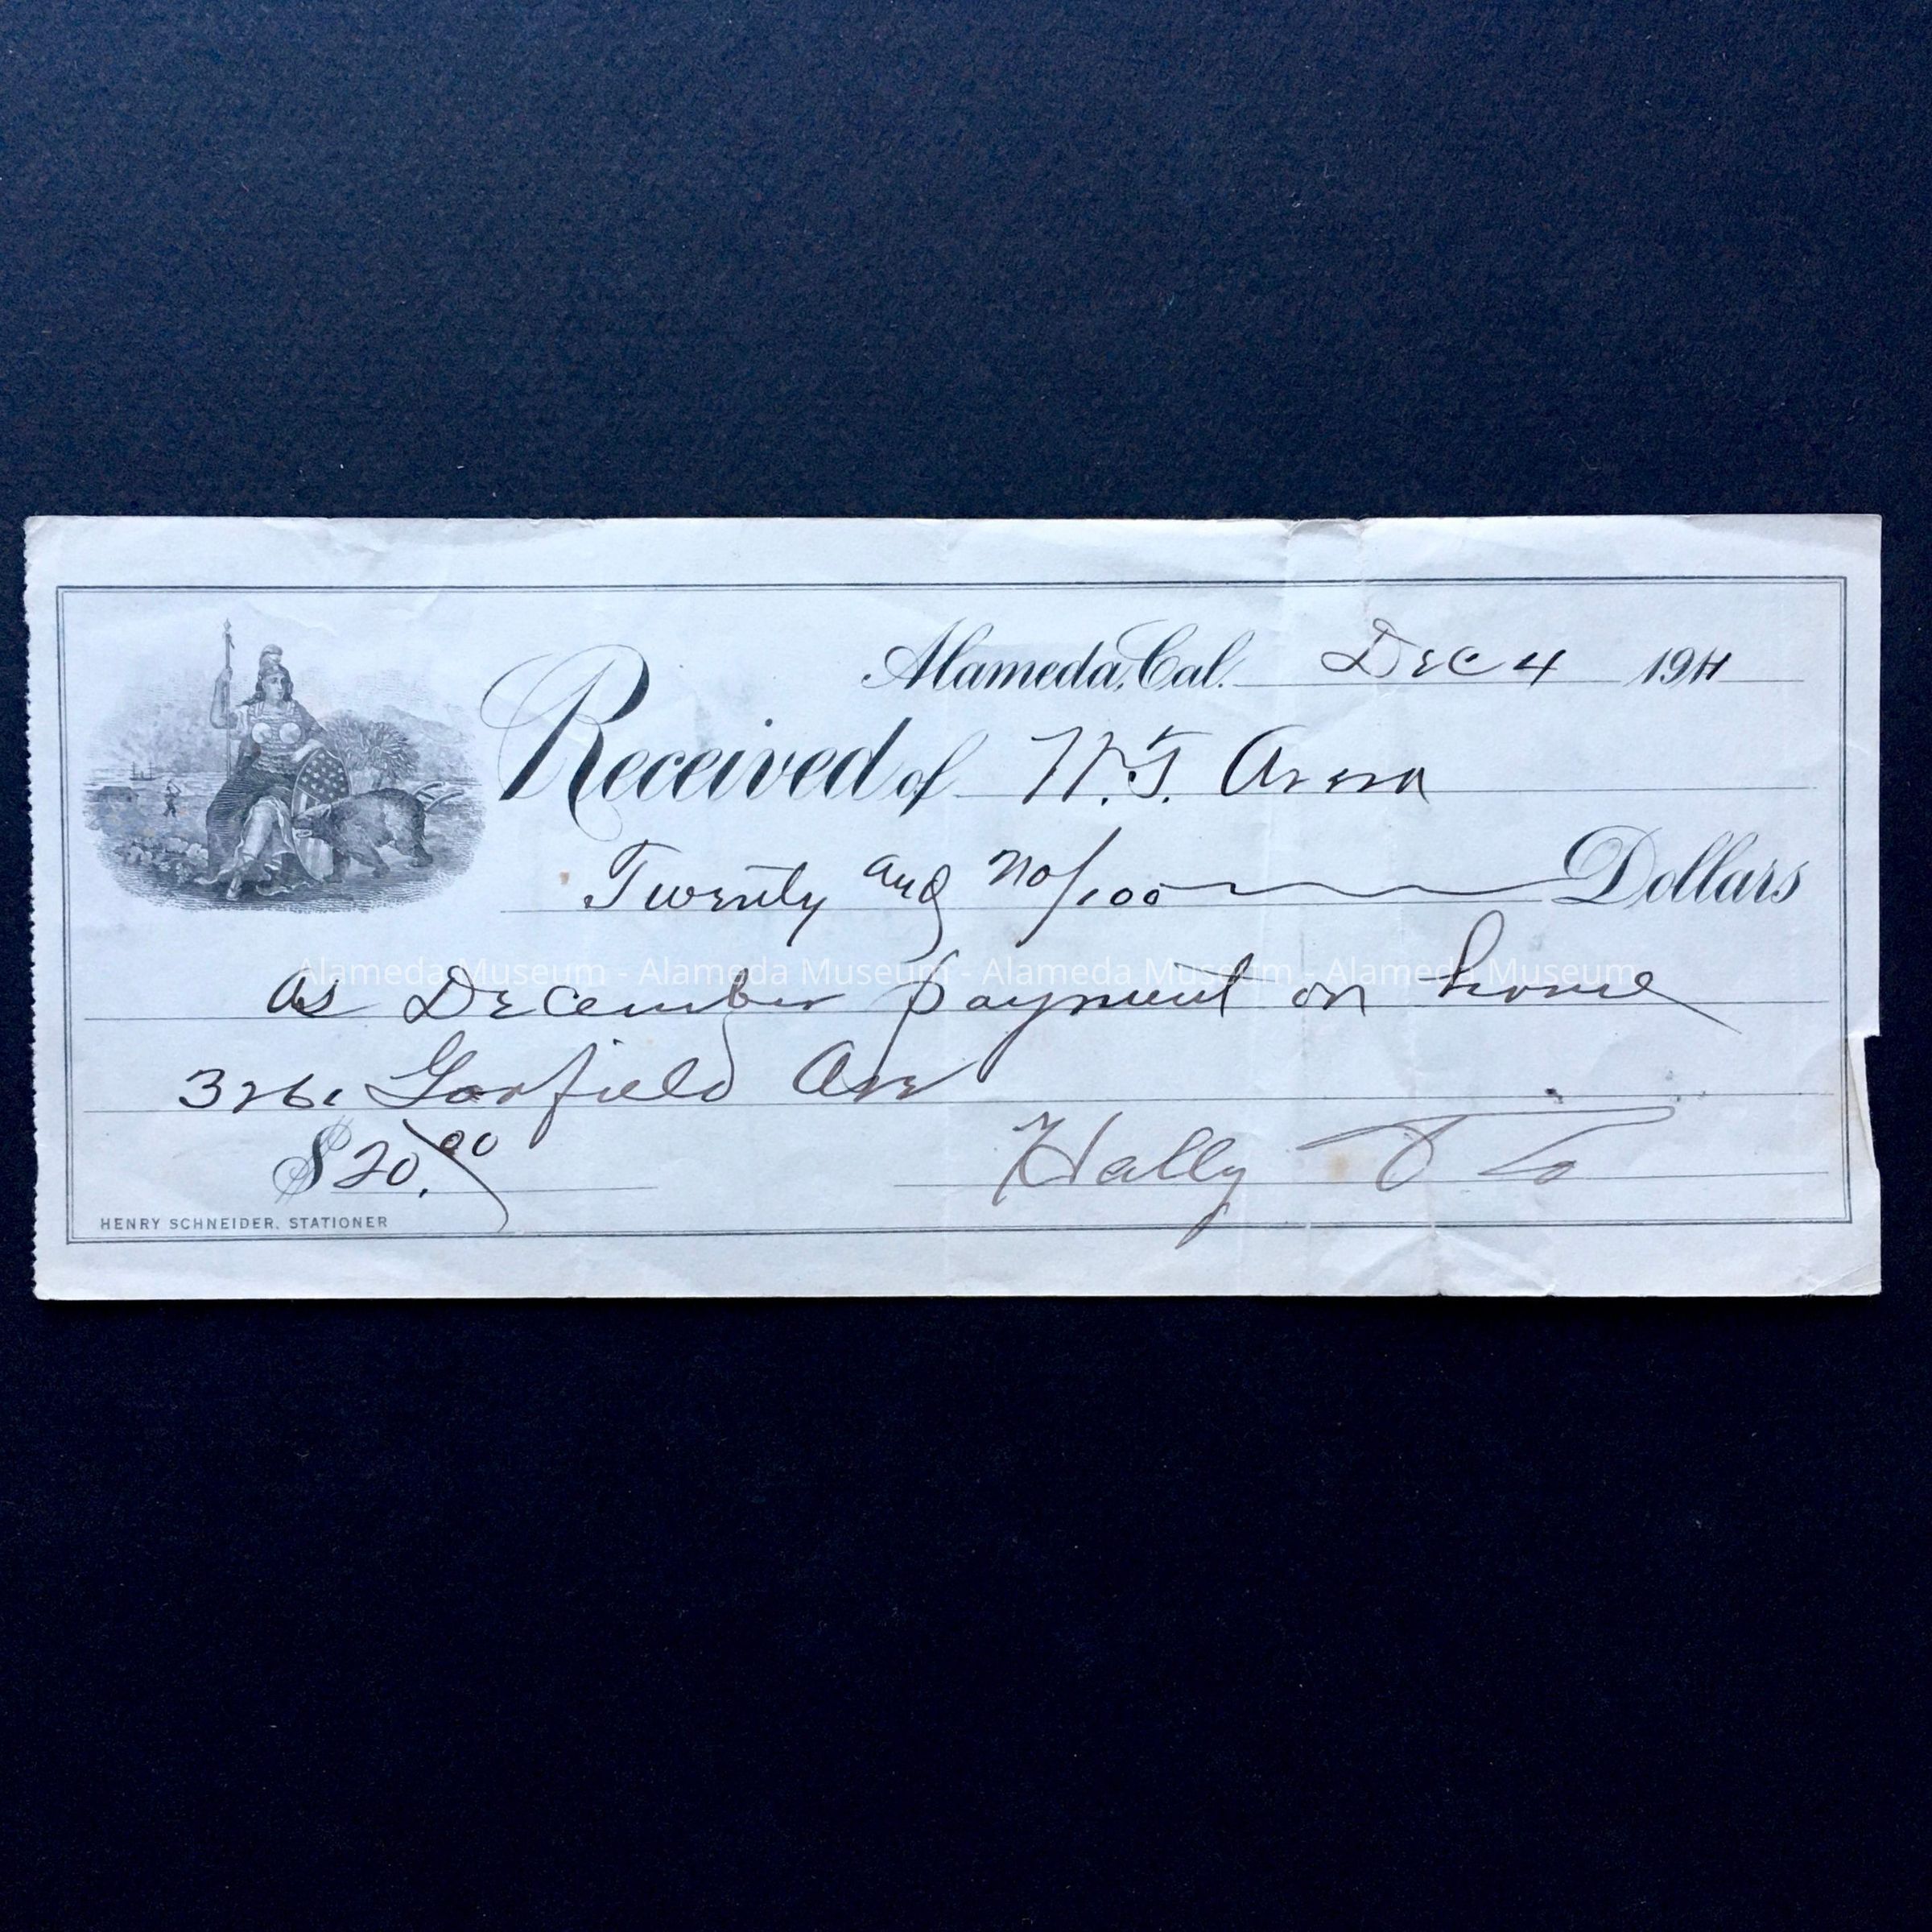 Alameda, Cal. Dec 4 1911
Received of
Twenty and no/100 Dollars
Alameda Museum - Alameda Museum - Alameda Museum - Alameda Museum
as December payment on home
Garfield Ave
$20.00
Hally
HENRY SCHNEIDER, STATIONER